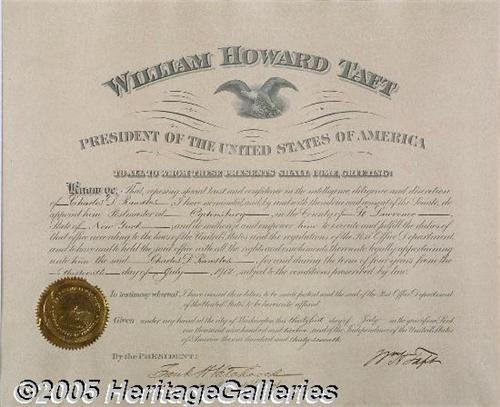 WILLIAM HOWARD TAFT
PRESIDENT OF THE UNITED STATES OF AMERICA
TO ALL TO WHOM THESE PRESENTS SHALL COME, GREETING:
Know ye, That, reposing special trust and confidence in the intelligence, diligence and discretion
of Charles D. I have nominated and by and with the advice and consent of the Senate, do
appoint him Postmaster at Ogdensburg in the County of St. Lawrence
State of New York and do authorize and empower him to execute and fulfill the duties of
that office according to the laws of the United States and the regulations of the Post Office Department,
and to have and to hold the said office with all the rights and emoluments thereunto legally appertaining
unto him the said Charles D. for and during the term of four years from the
day of July 1912, subject to the conditions prescribed by law.
In testimony whereof I have caused these letters to be made patent and the seal of the Post Office Department
of the United States to be hereunto affixed.
Given under my hand at the city of Washington this day of July in the year of our Lord
one thousand nine hundred and twelve and of the Independence of the United States
of America the one hundred and thirty seventh
By the PRESIDENT:
Frank H. Hitchcock
Wm H Taft
©2005 HeritageGalleries.com